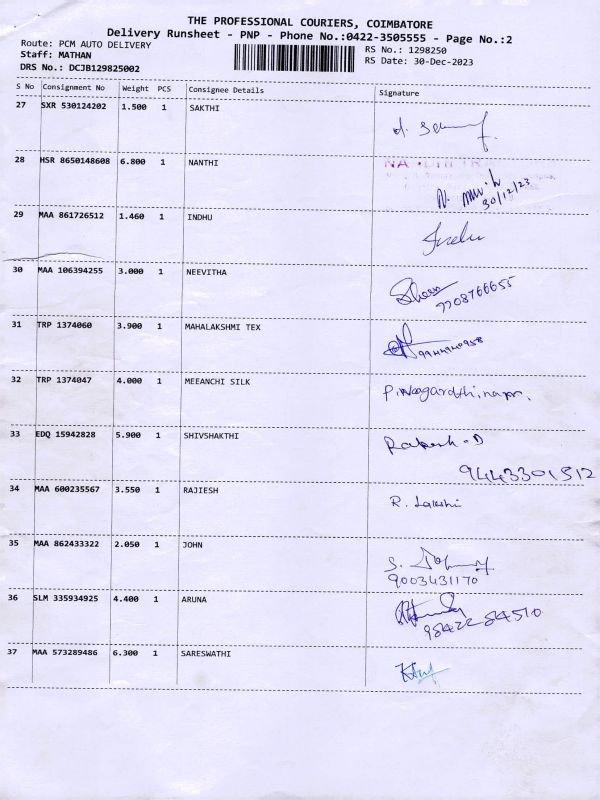 THE PROFESSIONAL COURIERS, COIMBATORE
Delivery Runsheet - PNP - Phone No.:0422-3505555 - Page No.:2
Route: PCM AUTO DELIVERY
RS No.: 1298250
Staff: MATHAN
RS Date: 30-Dec-2023
DRS No.: DCJB129825002
S No Consignment No Weight PCS Consignee Details Signature
27 SXR 530124202 1.500 1 SAKTHI
28 HSR 8650148608 6.800 1 NANTHI
30/12/23
29 MAA 861726512 1.460 1 INDHU
Indhu
30 MAA 106394255 3.000 1 NEEVITHA
7708766655
31 TRP 1374060 3.900 1 MAHALAKSHMI TEX
32 TRP 1374047 4.000 1 MEEANCHI SILK
33 EDQ 15942828 5.900 1 SHIVSHAKTHI
Rakesh.D
9443301512
34 MAA 600235567 3.550 1 RAJIESH
R. Lakshi
35 MAA 862433322 2.050 1 JOHN
9003431170
36 SLM 335934925 4.400 1 ARUNA
9842284510
37 MAA 573289486 6.300 1 SARESWATHI